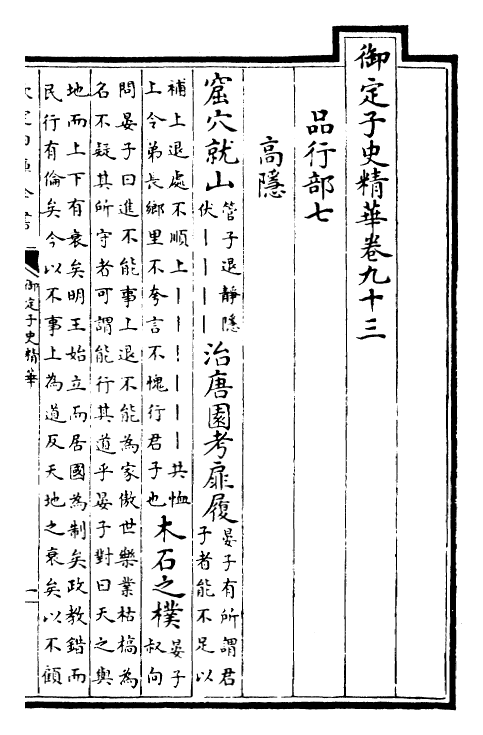 御定子史精華卷九十三
品行部七
高隱
窟穴就山管子退靜隱
伏丨丨丨丨治唐園考扉履晏子有所謂君
子者能不足以
補上退處不順上丨丨丨丨丨丨共恤
上令弟長鄉里不夸言不愧行君子也木石之樸晏子
叔向
問晏子曰進不能事上退不能為家傲世樂業枯槁為
名不疑其所守者可謂能行其道乎晏子對曰天之與
地而上下有衰矣明王始立而居國為制矣政教錯而
民行有倫矣今以不事上為道反天地之衰矣以不顧
御定子史精華
一